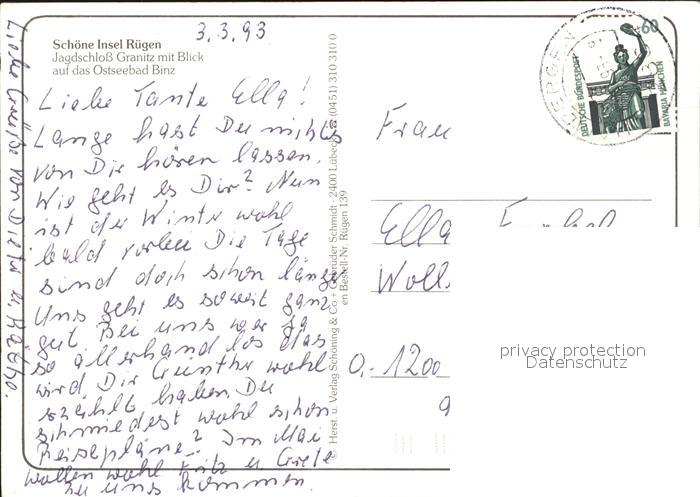 3.3.93
Schöne Insel Rügen
Jagdschloß Granitz mit Blick
auf das Ostseebad Binz
Liebe Tante Ella!
Lange hast Du nichts
von Dir hören lassen.
Wie geht es Dir? Nun
ist der Winter wohl
bald vorbei Die Tage
sind doch schon länger
Uns geht es soweit ganz
gut. Bei uns war ja
so allerhand los das
wird Dir Günther wohl
erzählt haben. Du
schmiedest wohl schon
Reisepläne? Im Mai
wollen wohl Fritz u Grete
zu uns kommen.
Liebe Grüße von Dieter u. Käthe.
© Herst. u. Verlag Schöning & Co + Gebrüder Schmidt · 2400 Lübeck ☎ (0451) 310 310 0
en Bestell-Nr. Rügen 139
BERGEN
60
DEUTSCHE BUNDESPOST
BAVARIA MÜNCHEN
Frau
Ella
O.-1200
privacy protection
Datenschutz